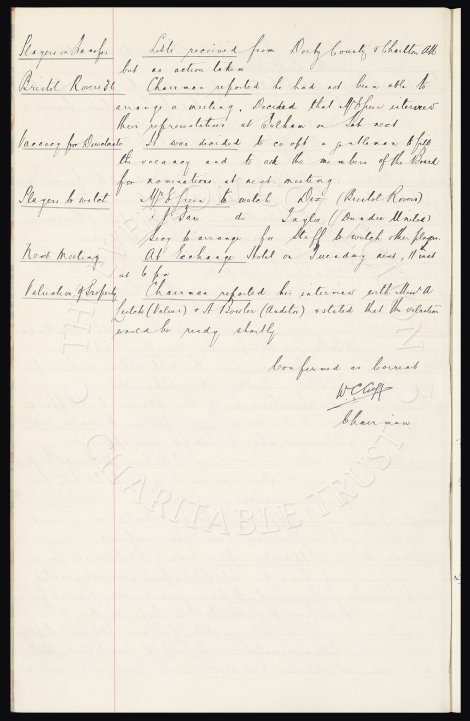 Players on Transfer Lists received from Derby County & Charlton Ath
but no action taken
Bristol Rovers Chairman reported he had not been able to
arrange a meeting. Decided that Mr Green interview
their representatives at Fulham on Sat next
Vacancy for Directorate It was decided to co opt a gentleman to fill
the vacancy and to ask the members of the Board
for nominations at next meeting.
Players to watch Mr E Green to watch Dix (Bristol Rovers)
do Taylor (Dundee United)
Secy to arrange for Staff to watch other players.
Next Meeting At Exchange Hotel on Tuesday next, 11 inst
at 6 pm
Valuation of Property Chairman reported his interview with A
Leitch (Valuer) & A Bowler (Auditor) & stated that the valuation
would be ready shortly
Confirmed as Correct
W. C. Cuff
Chairman
THE EVERTON
CHARITABLE TRUST